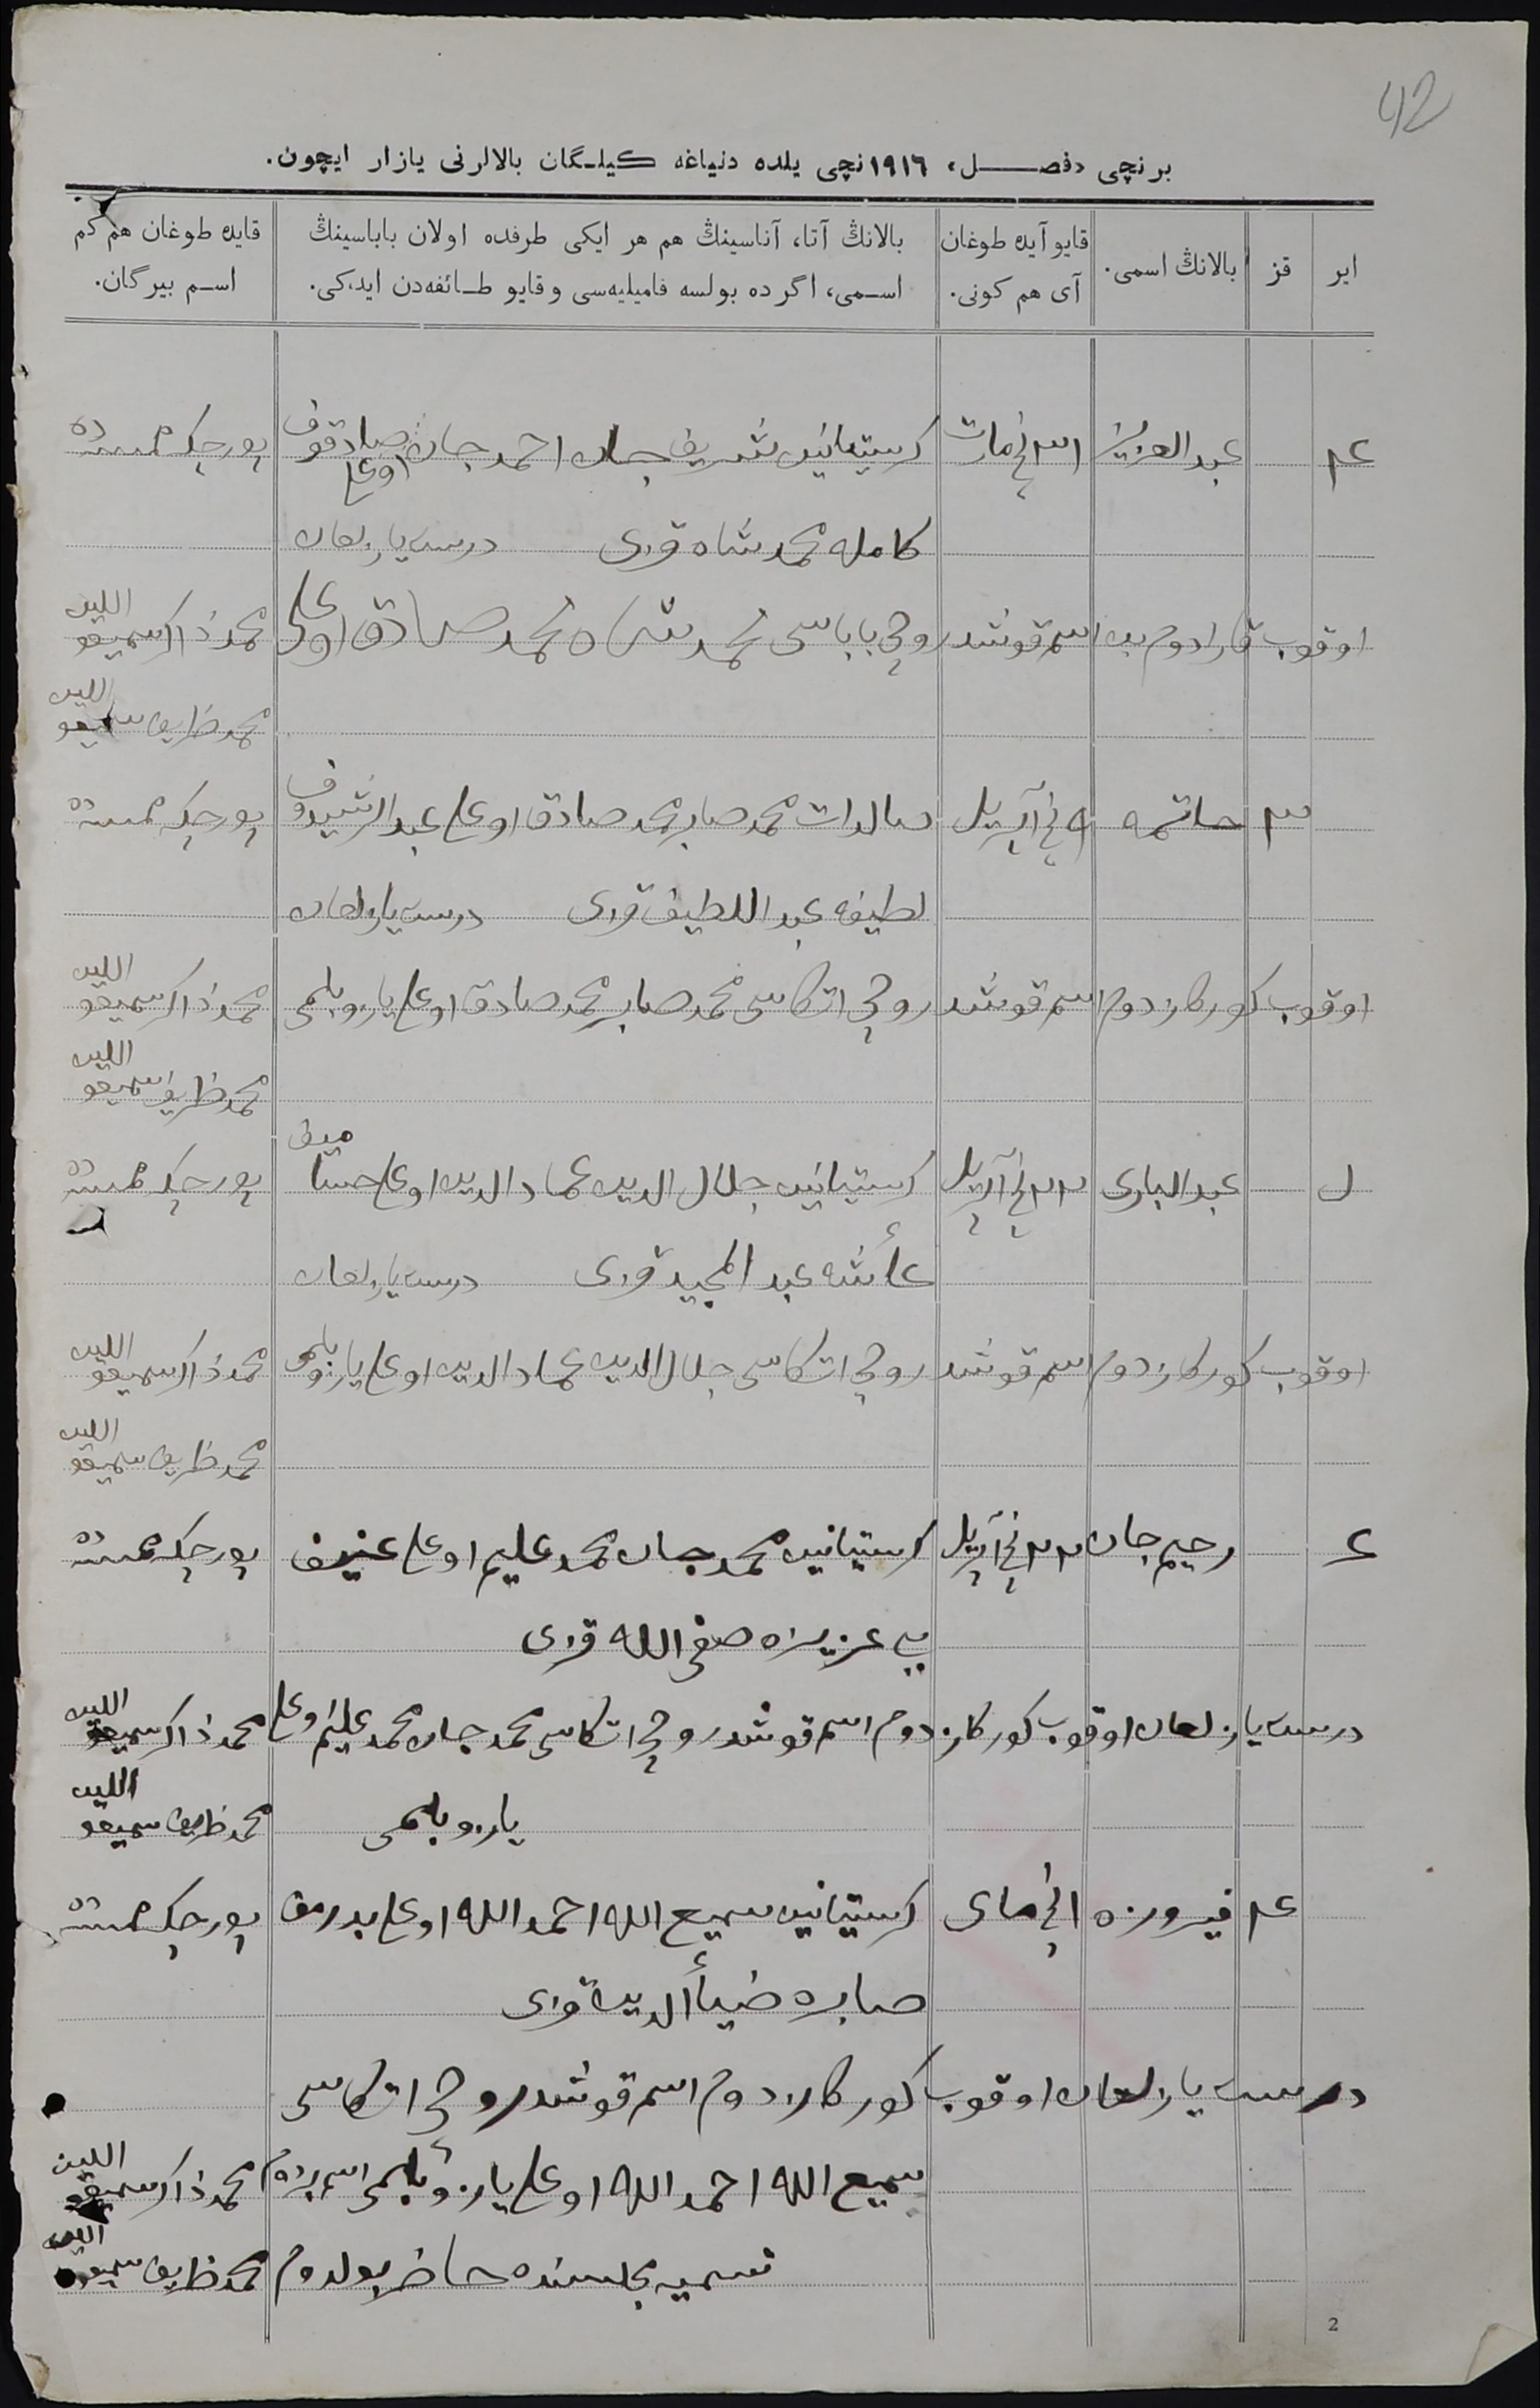 42
برنچی «فصل» ١٩١٦نچی یلده دنیاغه کیلگان بالالرنی یازار ایچون.
ایر
قز
بالانڭ اسمی.
قایو آیده طوغان آی هم کونی.
بالانڭ آتا، آناسینڭ هم هر ایکی طرفده اولان باباسینڭ اسمی، اگر ده بولسه فامیلیه‌سی و قایو طائفه‌دن ایدکی.
قایده طوغان هم کم اسم بیرگان.
عبدالعزیز ٣١نچی مارت کرستیانین شریف جان احمد جان اوغلی صادقوف
کامله محمد شاه قزی درست یازلغان
اوقوب قارادوم اسم قوشدروچی باباسی محمد شاه محمد صادق اوغلی محمد ذاکر سمیعو اللین
محمد ظریف سمیعو اللین
٣ حاتمه ٩نچی آپریل صالدات محمد صابر محمد صادق اوغلی عبدالرشیدوف
لطیفه عبداللطیف قزی درست یازلغان
اوقوب کورکازدوم اسم قوشدروچی اتکاسی محمد صابر محمد صادق اوغلی یازو بلمی محمد ذاکر سمیعو اللین
محمد ظریف سمیعو اللین
عبدالباری ٢٢نچی آپریل کرستیانین جلال الدین عماد الدین اوغلی
عائشه عبد المجید قزی درست یازلغان
اوقوب کورکازدوم اسم قوشدروچی اتکاسی جلال الدین عماد الدین اوغلی یازو بلمی محمد ذاکر سمیعو اللین
محمد ظریف سمیعو اللین
رحیم جان ٢٢نچی آپریل کرستیانین محمد جان محمد علیم اوغلی
بی عزیزه صفی الله قزی
درست یازلغان اوقوب کورکازدوم اسم قوشدروچی اتکاسی محمد جان محمد علیم اوغلی محمد ذاکر سمیعو اللین
یازو بلمی محمد ظریف سمیعو اللین
فیروزه ١نچی مای کرستیانین سمیع الله احمد الله اوغلی
صابره ضیاء الدین قزی
درست یازلغان اوقوب کورکازدوم اسم قوشدروچی اتکاسی
سمیع الله احمد الله اوغلی یازو بلمی محمد ذاکر سمیعو اللین
تسمیه مجلسنده حاضر بولدوم محمد ظریف سمیعو اللین
2